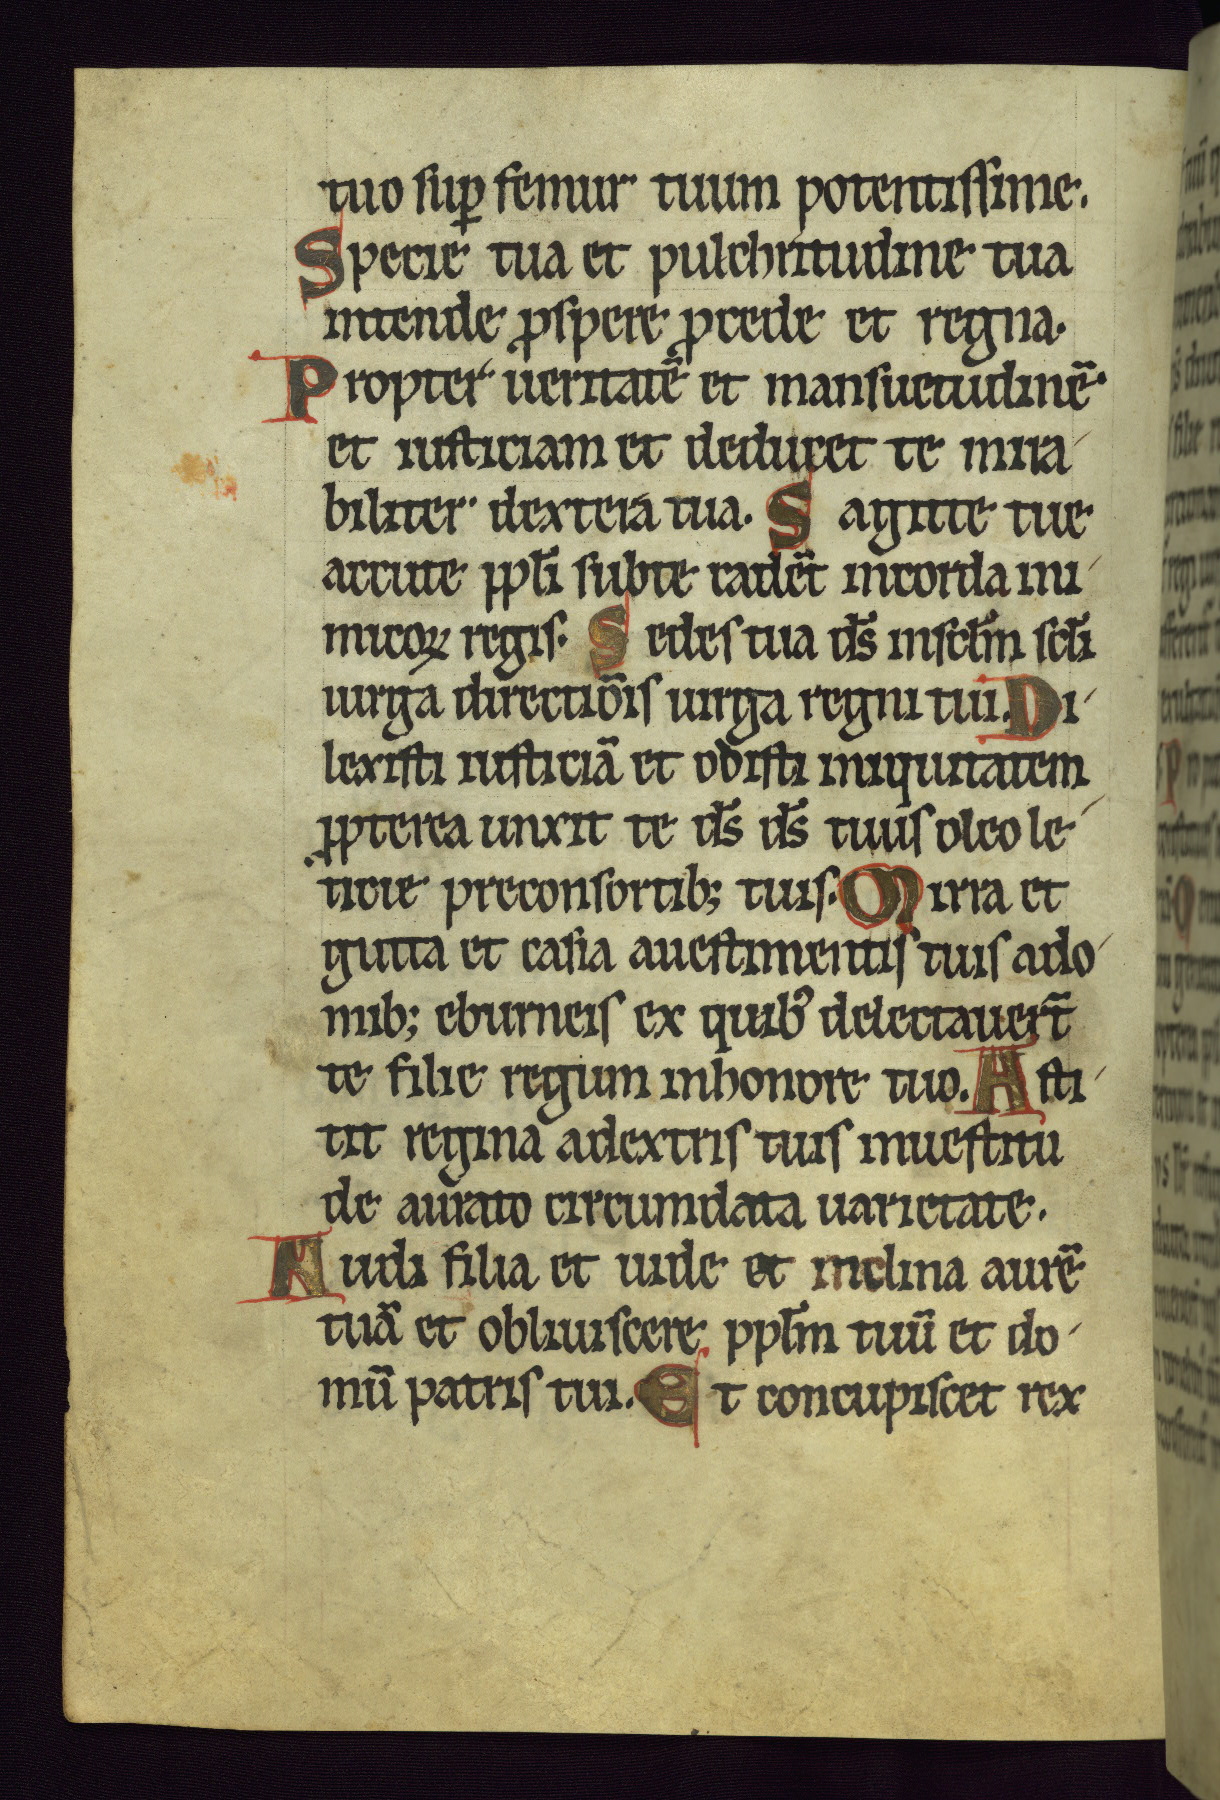 tuo suꝑ femur tuum potentissime.
Specie tua et pulchritudine tua
intende ꝓspere ꝓcede et regna.
Propter ueritatē et mansuetudinē.
et iusticiam et deducet te mira
biliter dextera tua. Sagitte tue
accute ppl̄i subte cadēt incorda ini
micoꝝ regis. Sedes tua ds̄ inscl̄m scl̄i
uirga directiōis uirga regni tui. Di
lexisti iusticiā et odisti iniquitatem
ꝓpterea unxit te ds̄ ds̄ tuus oleo le
ticie preconsortib; tuis. Mirra et
gutta et casia auestimentis tuis ado
mib; eburneis ex quibꝰ delectauert̄
te filie regum inhonore tuo. Asti
tit regina adextris tuis inuestitu
de aurato circumdata uarietate.
Audi filia et uide et inclina aurē
tuā et obliuiscere ppl̄m tuū et do
mū patris tui. Et concupiscet rex